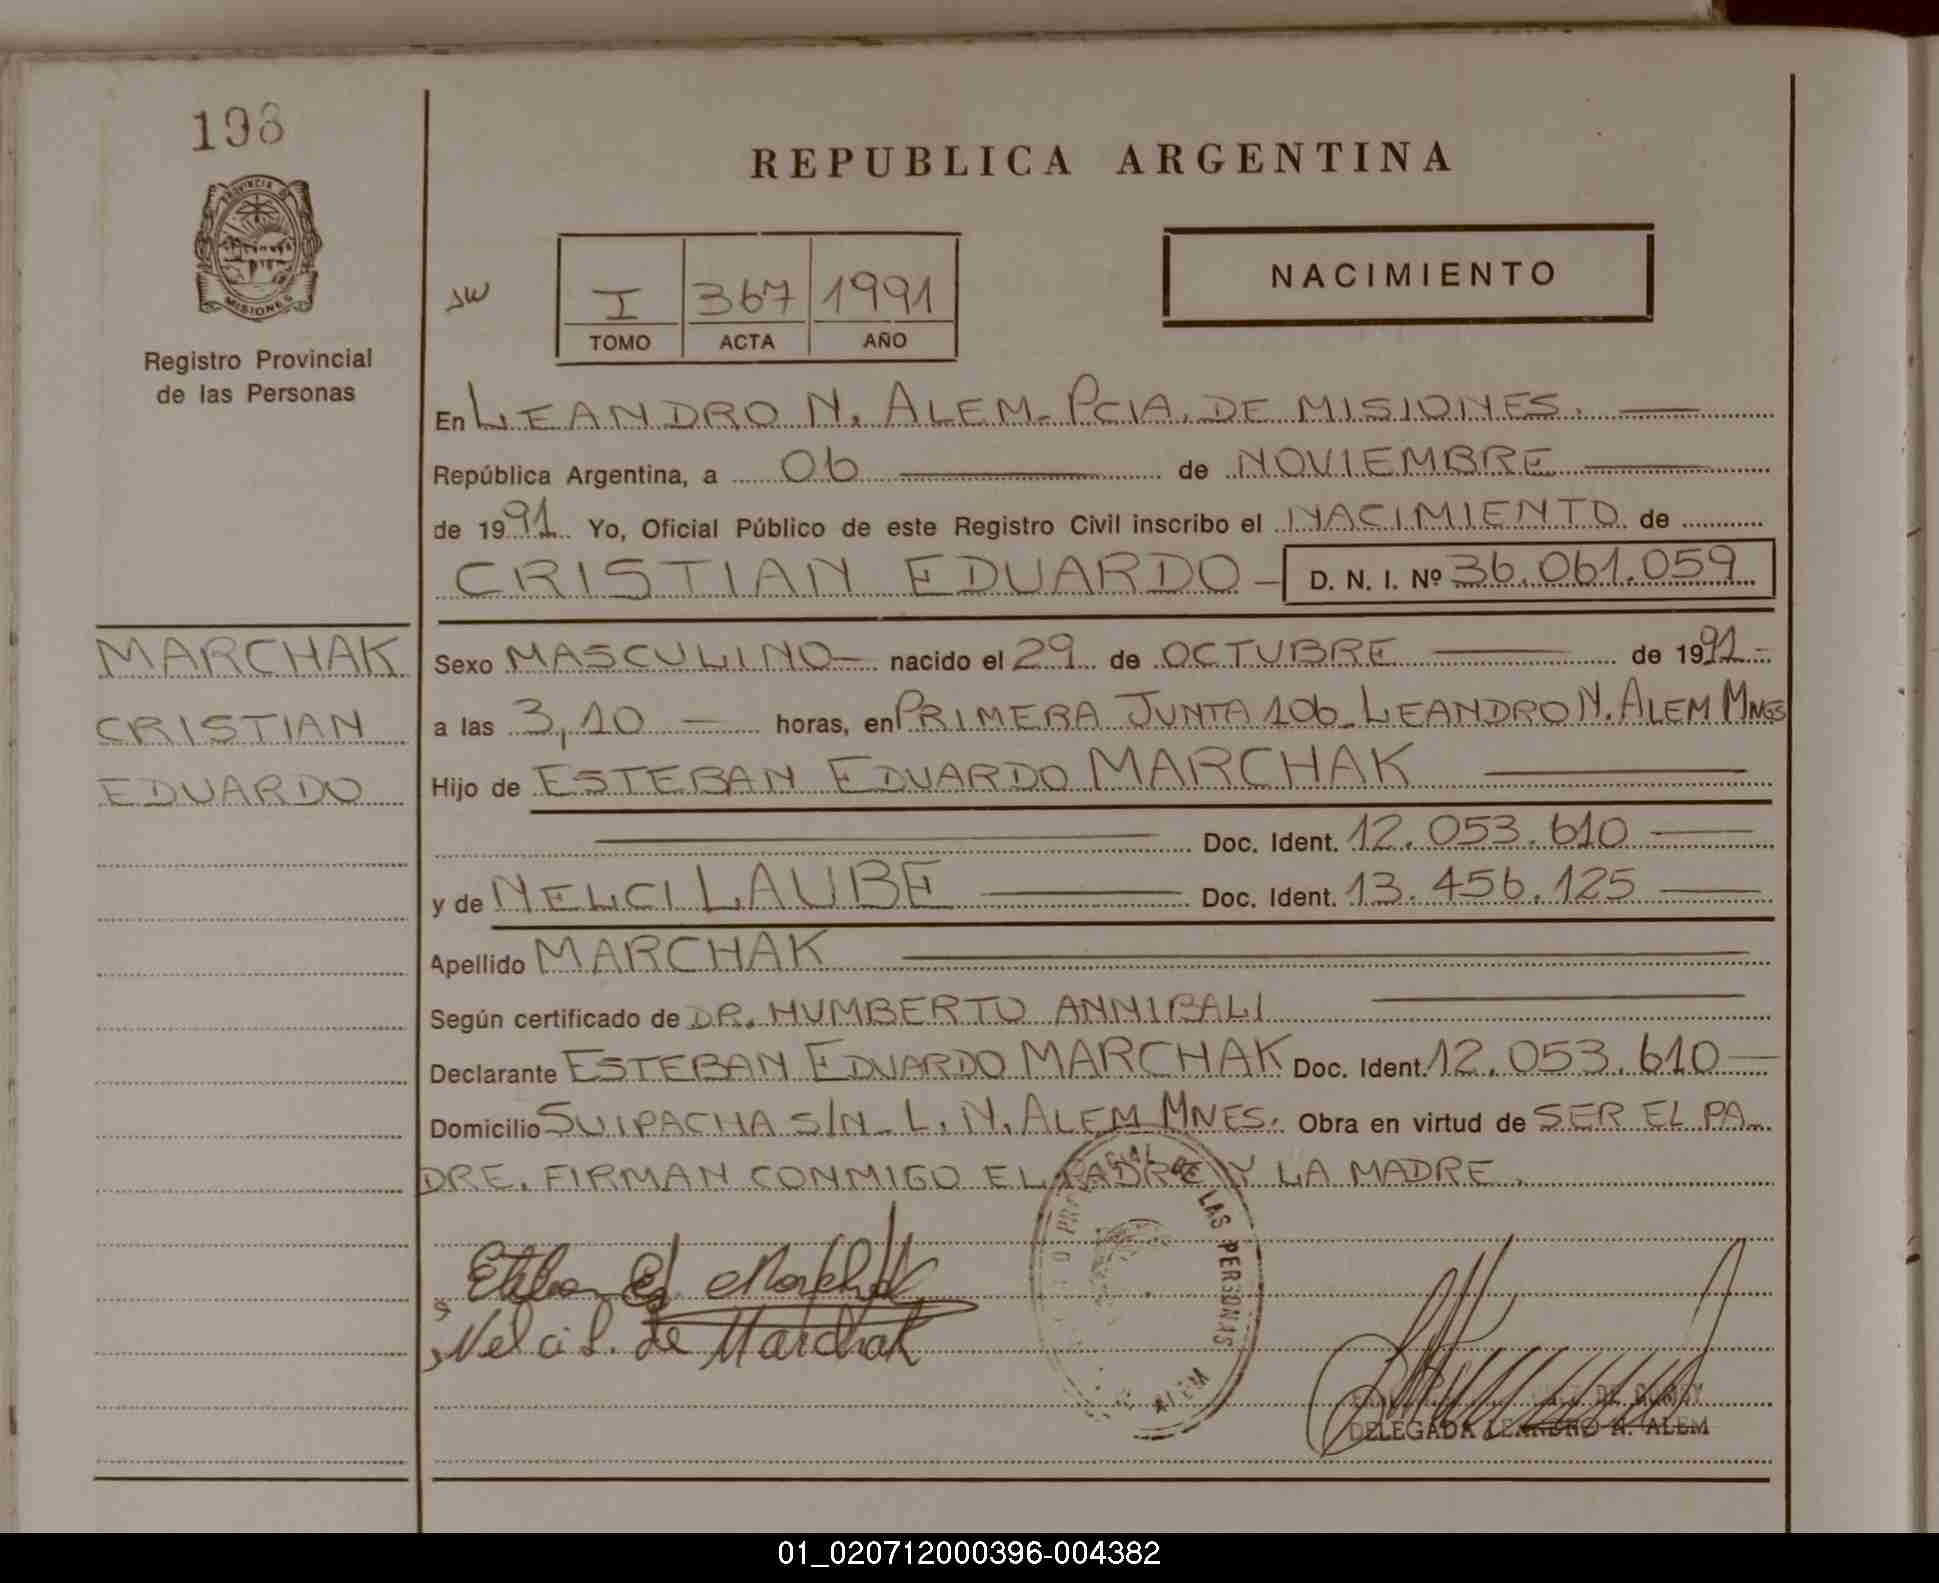 198
PROVINCIA DE
MISIONES
Registro Provincial
de las Personas
REPUBLICA ARGENTINA
I 367 1991
TOMO ACTA AÑO
NACIMIENTO
En LEANDRO N. ALEM - PCIA. DE MISIONES.
República Argentina, a 06 de NOVIEMBRE
de 1991 Yo, Oficial Público de este Registro Civil inscribo el NACIMIENTO de
CRISTIAN EDUARDO - D. N. I. Nº 36.061.059
MARCHAK
CRISTIAN
EDUARDO
Sexo MASCULINO nacido el 29 de OCTUBRE de 1991
a las 3,10 horas, en PRIMERA JUNTA 106 - LEANDRO N. ALEM MNES
Hijo de ESTEBAN EDUARDO MARCHAK
Doc. Ident. 12.053.610
y de NELCI LAUBE Doc. Ident. 13.456.125
Apellido MARCHAK
Según certificado de DR. HUMBERTO ANNIBALI
Declarante ESTEBAN EDUARDO MARCHAK Doc. Ident. 12.053.610
Domicilio SUIPACHA S/N - L. N. ALEM MNES. Obra en virtud de SER EL PA-
DRE. FIRMAN CONMIGO EL PADRE Y LA MADRE.
Esteban Ed. Marchak
Nelci L. de Marchak
DE LAS PERSONAS
ALEM
DELEGADA LEANDRO N. ALEM
01_020712000396-004382